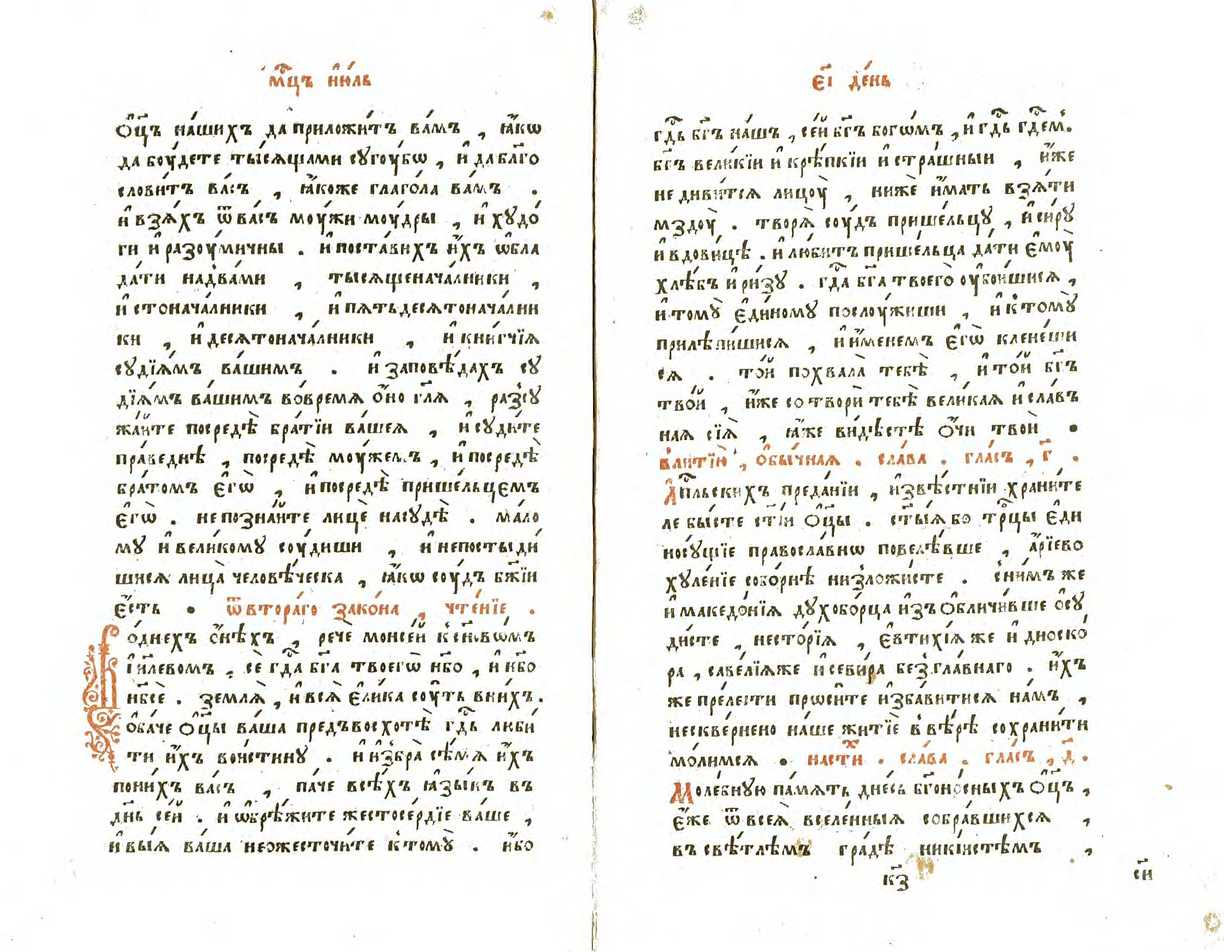 мⷭ҇цъ і҆ю́ль
Ѻ҆ц҃ъ на́шихъ да приложи́тъ ва́мъ , ꙗ҆́кѡ
да бꙋ́дете ты́сѧщами сꙋгꙋ́бѡ , и҆ да благо
слови́тъ ва́съ , ꙗ҆́коже глаго́ла ва́мъ .
и҆ взѧ́хъ ѿ ва́съ моу́жи моу́дры , и҆ хꙋдо́
ги и҆ разоу́мичны . и҆ поста́вихъ и҆̀хъ ѡ҆бла
да́ти над̾ва́ми , ты́сѧщенача́лники ,
и҆ стонача́лники , и҆ пѧтьдесѧтонача́лни
ки , и҆ десѧтонача́лники , и҆ кни́гчїѧ
сꙋдїѧ́мъ ва́шимъ . и҆ запове́дахъ сꙋ
дїѧ́мъ ва́шимъ во вре́мѧ ѻ҆́но гл҃ѧ , разсꙋ
жа́йте посредѣ̀ бра́тїи ва́шеѧ , и҆ сꙋди́те
пра́веднѣ , посредѣ̀ моу́жемъ , и҆ посредѣ̀
бра́томъ є҆гѡ̀ , и҆ посредѣ̀ прише́льцемъ
є҆гѡ̀ . не позна́йте лицѐ на сꙋдѣ̀ . ма́ло
мꙋ и҆ вели́комꙋ соу́диши , и҆ не постыди́
шисѧ лица̀ человѣ́ческа , ꙗ҆́кѡ соу́дъ бж҃їи
є҆́сть . ѿ втора́го зако́на , чте́нїе .
Во́ днехъ ѻ҆́нѣхъ , речѐ моисе́й к̾ сн҃ѡвѡ́мъ
і҆и҃левомъ , сѐ гд҇а бг҃а твоегѡ̀ нб҃о , и҆ нб҃о
нб҃се . землѧ̀ , и҆ всѧ̀ є҆ли́ка соу́ть в̾ ни́хъ .
ѻ҆ба́че ѻ҆ц҃ы ва́ша предъвосхотѣ̀ гд҇ь люби́
ти и҆́хъ вои́стинꙋ . и҆ и҆збра̀ сѣ́мѧ и҆́хъ
по ни́хъ ва́съ , па́че всѣ́хъ ꙗ҆зы́къ въ
дн҃ь се́й . и҆ ѡ҆брѣ́жите жестосе́рдїе ва́ше ,
и҆ вы́ѧ ва́ша не ѡжесточи́те к̾ томꙋ̀ . и҆́бо
є҃і де́нь
гд҇ь бг҃ъ на́шъ , се́й бг҃ъ бого́мъ , и҆ гд҇ь гд҇е́м .
бг҃ъ вели́кїи и҆ крѣ́пкїи и҆ стра́шныи , и҆́же
не диви́тсѧ лицоу̀ , нижѐ и҆́мать взѧ́ти
мздоу̀ . творѧ̀ соу́дъ прише́льцꙋ , и҆ си́рꙋ
и҆ вдови́цѣ . и҆ лю́битъ прише́льца да́ти є҆моу̀
хлѣ́бъ и҆ ри́зꙋ . гд҇а бг҃а твоего̀ оу҆бои́шисѧ ,
и҆ томꙋ̀ є҆ди́номꙋ послоу́жиши , и҆ к̾ томꙋ̀
прилѣпи́шисѧ , и҆ и҆́менем̾ є҆гѡ̀ клене́ши
сѧ . то́й похвала̀ тебѣ̀ , и҆ то́й бг҃ъ
тво́й , и҆́же сотворѝ тебѣ̀ вели́каѧ и҆ сла́в̾
наѧ сїѧ̀ , ꙗ҆̀же ви́дѣстѣ ѻ҆́чи твоѝ .
в̾ литїю̀ , ѻ҆бы́чнаѧ . сла́ва . гла́съ , г҃ .
А҆пⷭ҇льскихъ преда́нїи , и҆звѣ́стнїи храни́те
ле бы́сте ст҃і́и ѻ҆ц҃ы . ст҃ы́ѧ бо трⷪ҇цы є҆ди
носꙋ́щїе правосла́внѡ повелѣ́вше , а҆́рїево
хꙋле́нїе собо́рнѣ низложи́сте . с̾ ни́мъ же
и҆ македо́нїѧ дꙋхобо́рца и҆зъѻбличи́вше ѻ҆сꙋ
ди́сте , несто́рїѧ , є҆втихі́ѧ же и҆ диоско́
ра , саве́лїѧже и҆ севи́ра без̾гла́внаго . и҆́хъ
же пре́лести про́сите и҆зба́витисѧ на́мъ ,
нескве́рнено на́ше житїѐ в̾ вѣ́рѣ сохрани́ти
мо́лимсѧ . на сти́х . сла́ва . гла́съ , д҃ .
Моле́бнꙋю па́мѧть дне́сь бг҃оно́сныхъ ѻ҆ц҃ъ ,
є҆́же ѿ всеѧ̀ вселе́нныѧ собра́вшихсѧ ,
въ свѣ́тлѣмъ гра́дѣ нике́йстѣмъ ,
к҃з
с҃и